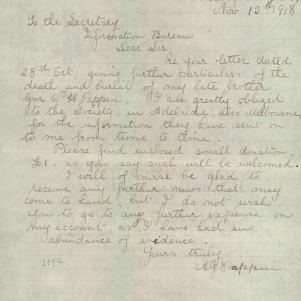 Nov 12th 1918
To the Secretary
Information Bureau
Dear Sir
Re your letter dated
28th Oct, giving further particulars of the
death and burial of my late brother
Gnr W H Pappin. I am greatly obliged
to the Society in Adelaide, also Melbourne
for the information they have sent on
to me from time to time.
Please find enclosed small donation,
£1. as you say such will be welcomed.
I will of course be glad to
receive any further news that may
come to hand, but I do not wish
you to go to any further expense on
my account as I have had an
abundance of evidence.
Yours truly
Pappin
2092